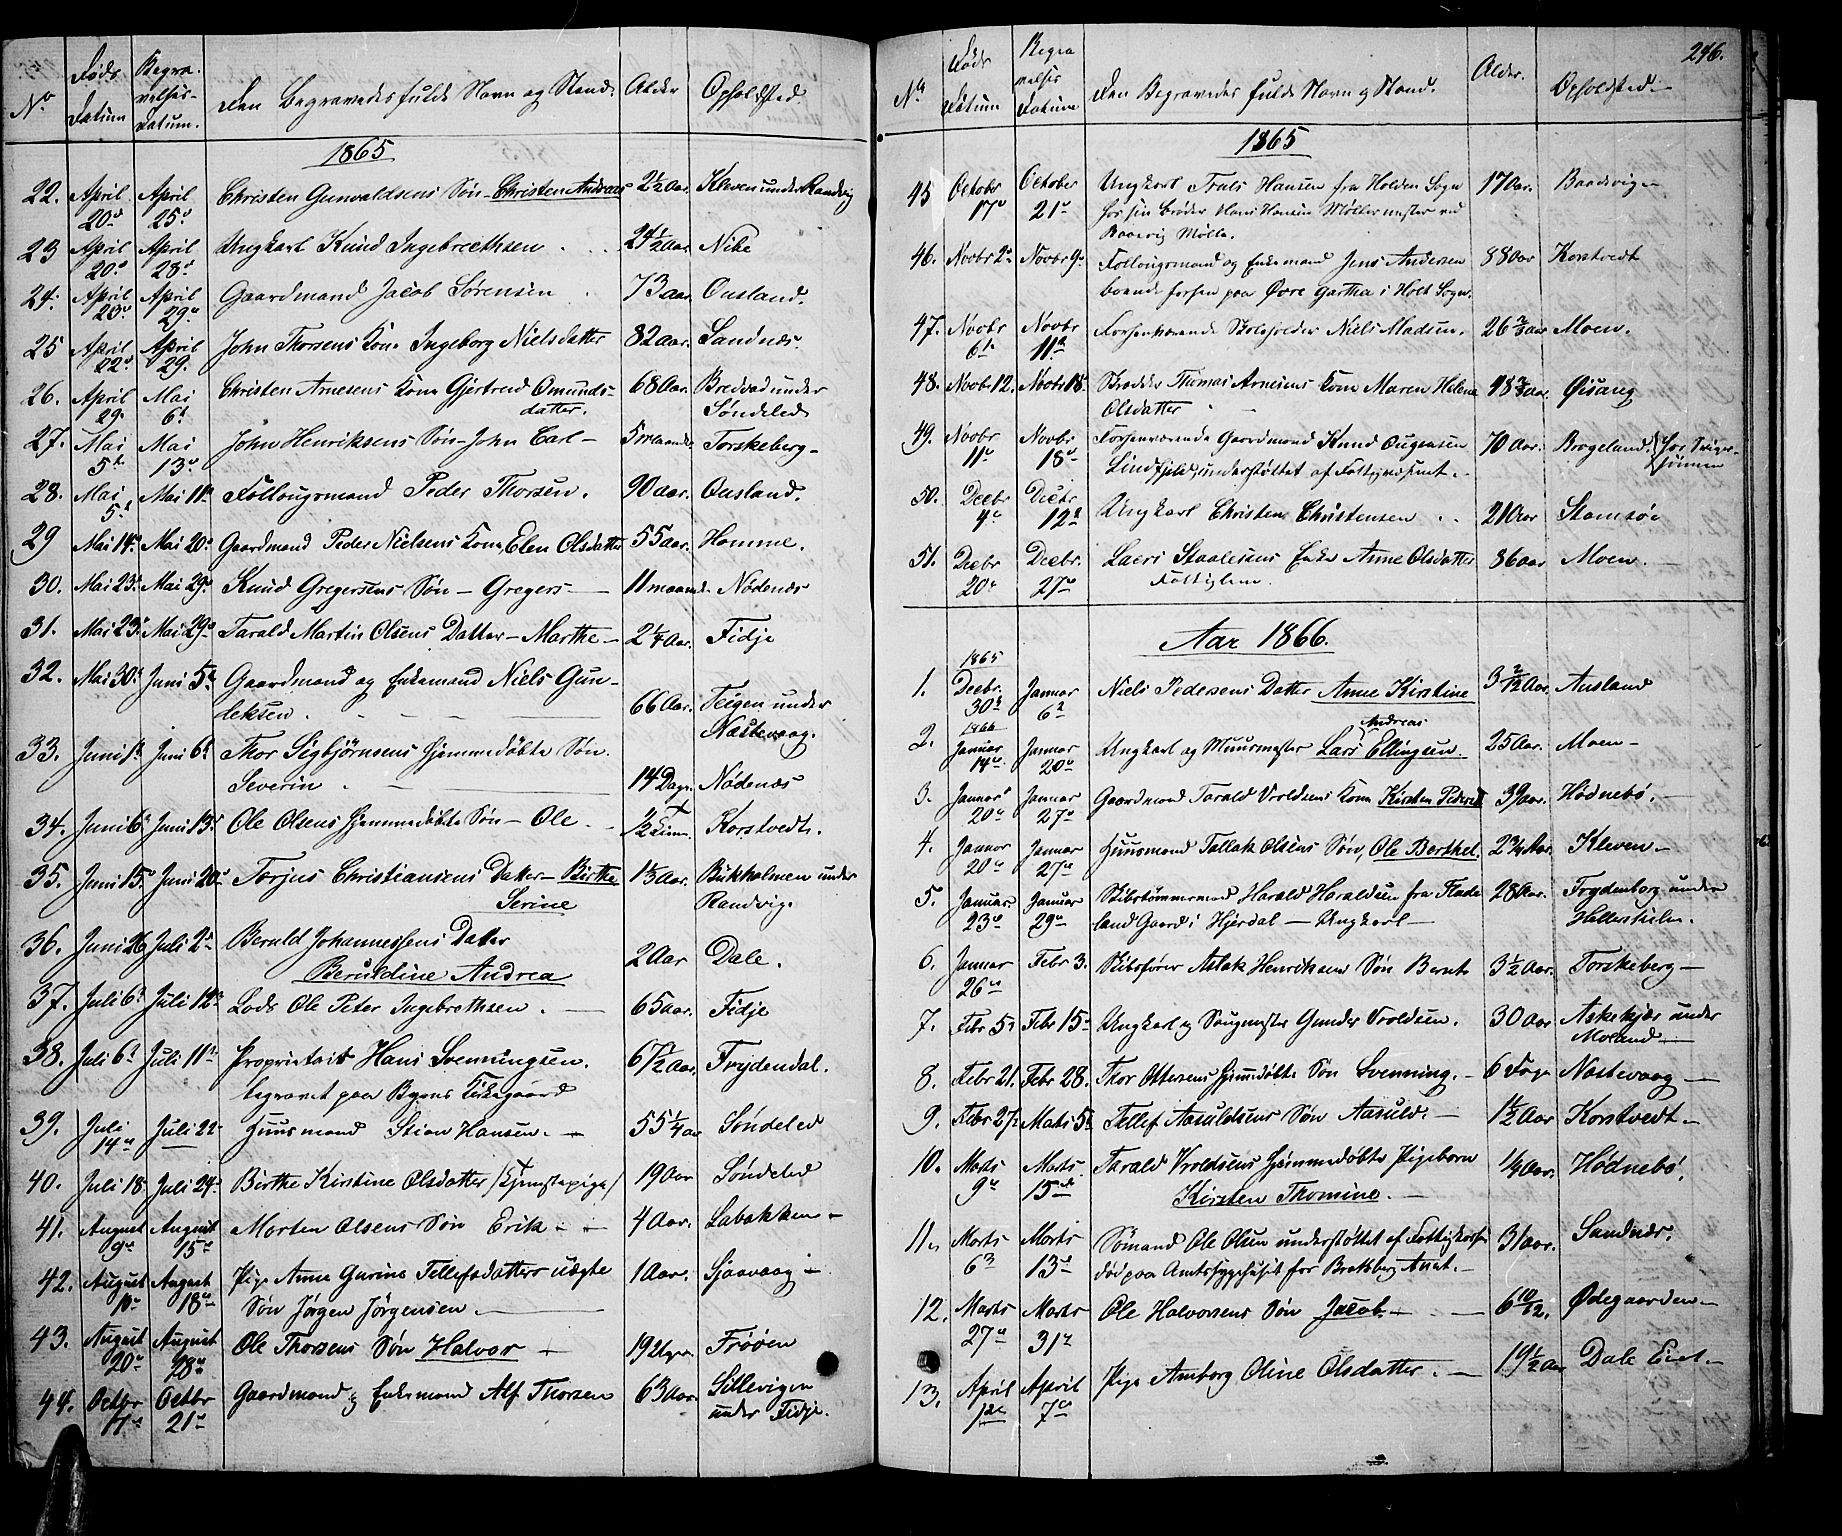 No Døds Datum Begravelses-Datum. Den Begravedes fulde Navn og Stand. Alder Opholdsted.
1865
22. April 20de April 25de Christen Gunvaldsens Søn - Christen Andreas 2½ Aar. Kleven under Randvig
23 April 20de April 28de Ungkarl Knud Ingebrethsen 24½ Aar Nibe
24. April 23de April 29de Gaardmand Jacob Sørensen 73 aar. Ousland.
25 April 22de April 29. John Thorsens Kone Ingeborg Nielsdatter 82 aar. Sandnæs.
26. April 29. Mai 6t Christen Arnesens Kone Gjertrud Omunds-
datter. 68 Aar. Bredvad under Søndeled
27. Mai 5te Mai 13de John Henriksens Søn - John Carl - 5 maaneder Torskeberg -
28. Mai 5t Mai 11te Føllougsmand Peder Thorsen. 90 aar. Ousland.
29 Mai 14de Mai 20de Gaardmand Peder Nielsens Kone Elen Olsdatter 55 aar. Homme.
30. Mai 23de Mai 29de Knud Gregersens Søn - Gregers - 11 maaned. Nødenæs
31. Mai 23de Mai 29de Tarald Martin Olsens Datter - Marthe - 2¼ Aar. Fidje
32. Mai 30te Juni 5te Gaardmand og Enkemand Niels Gun-
deksen. 66 Aar. Teigen under Næstevaag.
33. Juni 1te Juni 6te Thor Sigbjørnsens hjemmedøbte Søn.
Severin. 14 Dage Nødenæs
34. Juni 6te Juni 13de Ole Olsens hjemmedøbte Søn - Ole. ½ Time Korstvedt.
35. Juni 15de Juni 20de Torjus Christiansens Datter - Birthe
Serine 1⅓ Aar. Birkholmen under Randvig.
36. Juni 26 Juli 2de Beruld Johannessens Datter
Beruldine Andrea 2 Aar Dale.
37. Juli 6te Juli 12te Lods Ole Peter Ingebrethsen. 65 aar. Fidje
38. Juli 6te Juli 11te Proprietair Hans Svenningsen.
begravet paa Byens Kirkegaard 67½ Aar. Frydendal.
39. Juli 14de Juli 22 Huusmand Stian Hansen. 55¼ aar Søndeled
40. Juli 18 Juli 24de Birthe Kirstine Olsdatter /Tjenestepige/ 19 Aar Søndeled
41. August 9de August 15de Morten Olsens Søn Erik 4 Aar. Labakken
42. August 10de August 18de Pige Anne Gurine Tellefsdatters uægte
Søn Jørgen Jørgensen. 1 Aar. Sjaavaag
43. August 20de August 28de Ole Thorsens Søn Halvor 19 Uger. Frøøen
44. Octbr 11te Octbr 21de Gaardmand og Enkemand Alf Thorsen 63 Aar Sillevigen under Fidje.
246.
No Døds Datum Begravelses Datum Den Begravedes fulde Navn og Stand. Alder. Opholdsted
1865
45 Octobr 17de October 21de Ungkarl Frals Hansen fra Holden Sogn
hos sin Broder Hans Hansen Møllermester ved
Baasvig Mølle. 17 Aar. Baadsvig
46. Novbr 2de Novbr 9de Føllougsmand og Enkemand Jens Andersen
boende forhen paa Øvre Gartha i Holt Sogn. 88 Aar Korstvedt
47. Novbr 6te Novbr 11te Forhenværende Skoleholder Niels Madsen. 26⅔ aar Moen.
48. Novbr 12. Novbr 18. Snedker Thomas Arnesens Kone Maren Helene
Olsdatter 48¾ aar. Øisang
49. Novbr 11te Novbr 18de Forhenværende Gaardmand Knud Ougensen
Lindfjeld, understøttet af Fattigvæsenet. 70 Aar. Brogeland.
50. Decbr 4de Decbr 12te Ungkarl Christen Christensen 21 Aar Stamsøe
51. Decbr 20de Decbr. 27de Laers Staalesens Enke Anne Olsdatter
Fattiglem. 86 aar Moen.
Aar 1866.
1. 1865 Decbr. 30te Januar 6te Niels Pedersens Datter Anne Kirstine 3 2/12 Aar. Ausland
2. 1866 Januar 14de Januar 20de Ungkarl og Muurmester Lars Andreas Ellingsen. 25 Aar. Moen
3. Januar 20de Januar 27de Gaardmand Tarald Vroldsens Kone Kirsten Pedersd 39 aar. Hødnebø.
4. Januar 20de Januar 27de Huusmand Tallak Olsens Søn, Ole Berthel. 2¾ Aar. Kleven
5. Januar. 23de Januar 29de Skibstømmermand Harald Haraldsen fra Flade-
land Gaard i Hjerdal - Ungkarl - 28 Aar. Frydenborg under Hellerskilen.
6. Januar 26de Febr 3. Skibsfører Aslak Henriksens Søn Bernt 3½ Aar. Torskeberg
7. Febr 5te Febr 15de Ungkarl og Saugmester Gunder Vroldsen. 30 Aar Askekjær under Moland
8. Febr 21. Febr 28. Thor Ottersens hjemmdøbte Søn Svenning. 6 Dage Næstevaag
9. Febr 27de Marts 5te Tellef Aasuldsens Søn Aasuld. 1½ Aar Korstvedt
10. Marts 9de Marts 15de Tarald Vroldsens hjemmedøbte Pigebarn
Kirsten Thomine. ¼ Aar. Hødnebø.
11. Marts 6te Marts 13de Sømand Ole Olsen understøttet af Fattigkassen
død paa Amtssygehuset for Bratsberg Amt. 31 aar. Sandnæs.
12. Marts 27de Marts 31te Ole Halvorsens Søn Jacob. 6 10/12. Ødegaarden
13. April 1ste April 7de Pige Amborg Oline Olsdatter. 19½ Aar Dale Eiet